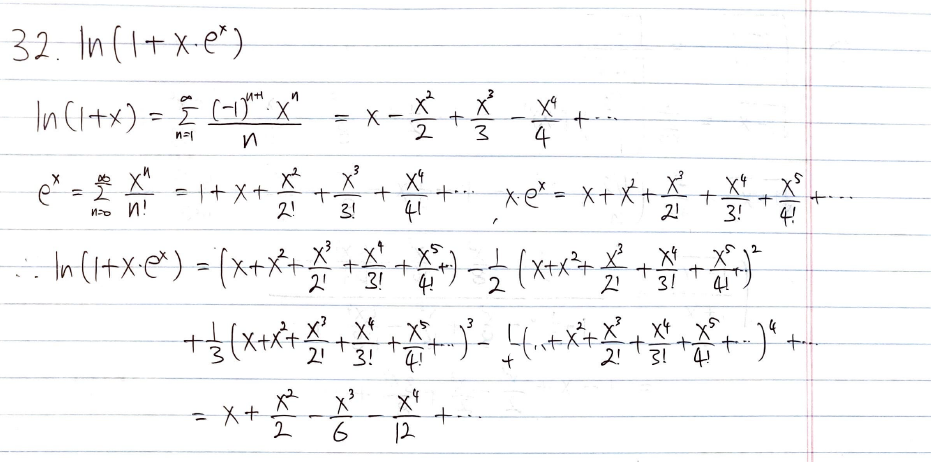 32. ln(1+x·eˣ)
ln(1+x) = ∞Σn=1 (-1)ⁿ⁺¹·xⁿ/n = x - x²/2 + x³/3 - x⁴/4 + ···
eˣ = ∞Σn=0 xⁿ/n! = 1 + x + x²/2! + x³/3! + x⁴/4! + ··· , x·eˣ = x + x² + x³/2! + x⁴/3! + x⁵/4! + ···
∴ ln(1+x·eˣ) = (x+x²+x³/2!+x⁴/3!+x⁵/4!+··) - 1/2 (x+x²+x³/2!+x⁴/3!+x⁵/4!+··)²
+ 1/3 (x+x²+x³/2!+x⁴/3!+x⁵/4!+··)³ - (··+x²+x³/2!+x⁴/3!+x⁵/4!+···)⁴ + ···
= x + x²/2 - x³/6 - x⁴/12 + ···